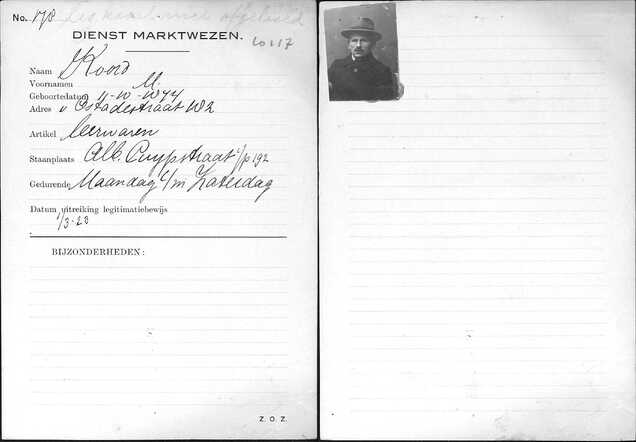 No. 178
DIENST MARKTWEZEN.
Naam Koord
Voornamen M.
Geboortedatum
Adres v Ostadestraat
Artikel leerwaren
Staanplaats Alb. Cuypstraat t/o 192
Gedurende Maandag t/m Zaterdag
Datum uitreiking legitimatiebewijs
1/3-23
BIJZONDERHEDEN:
Z. O. Z.